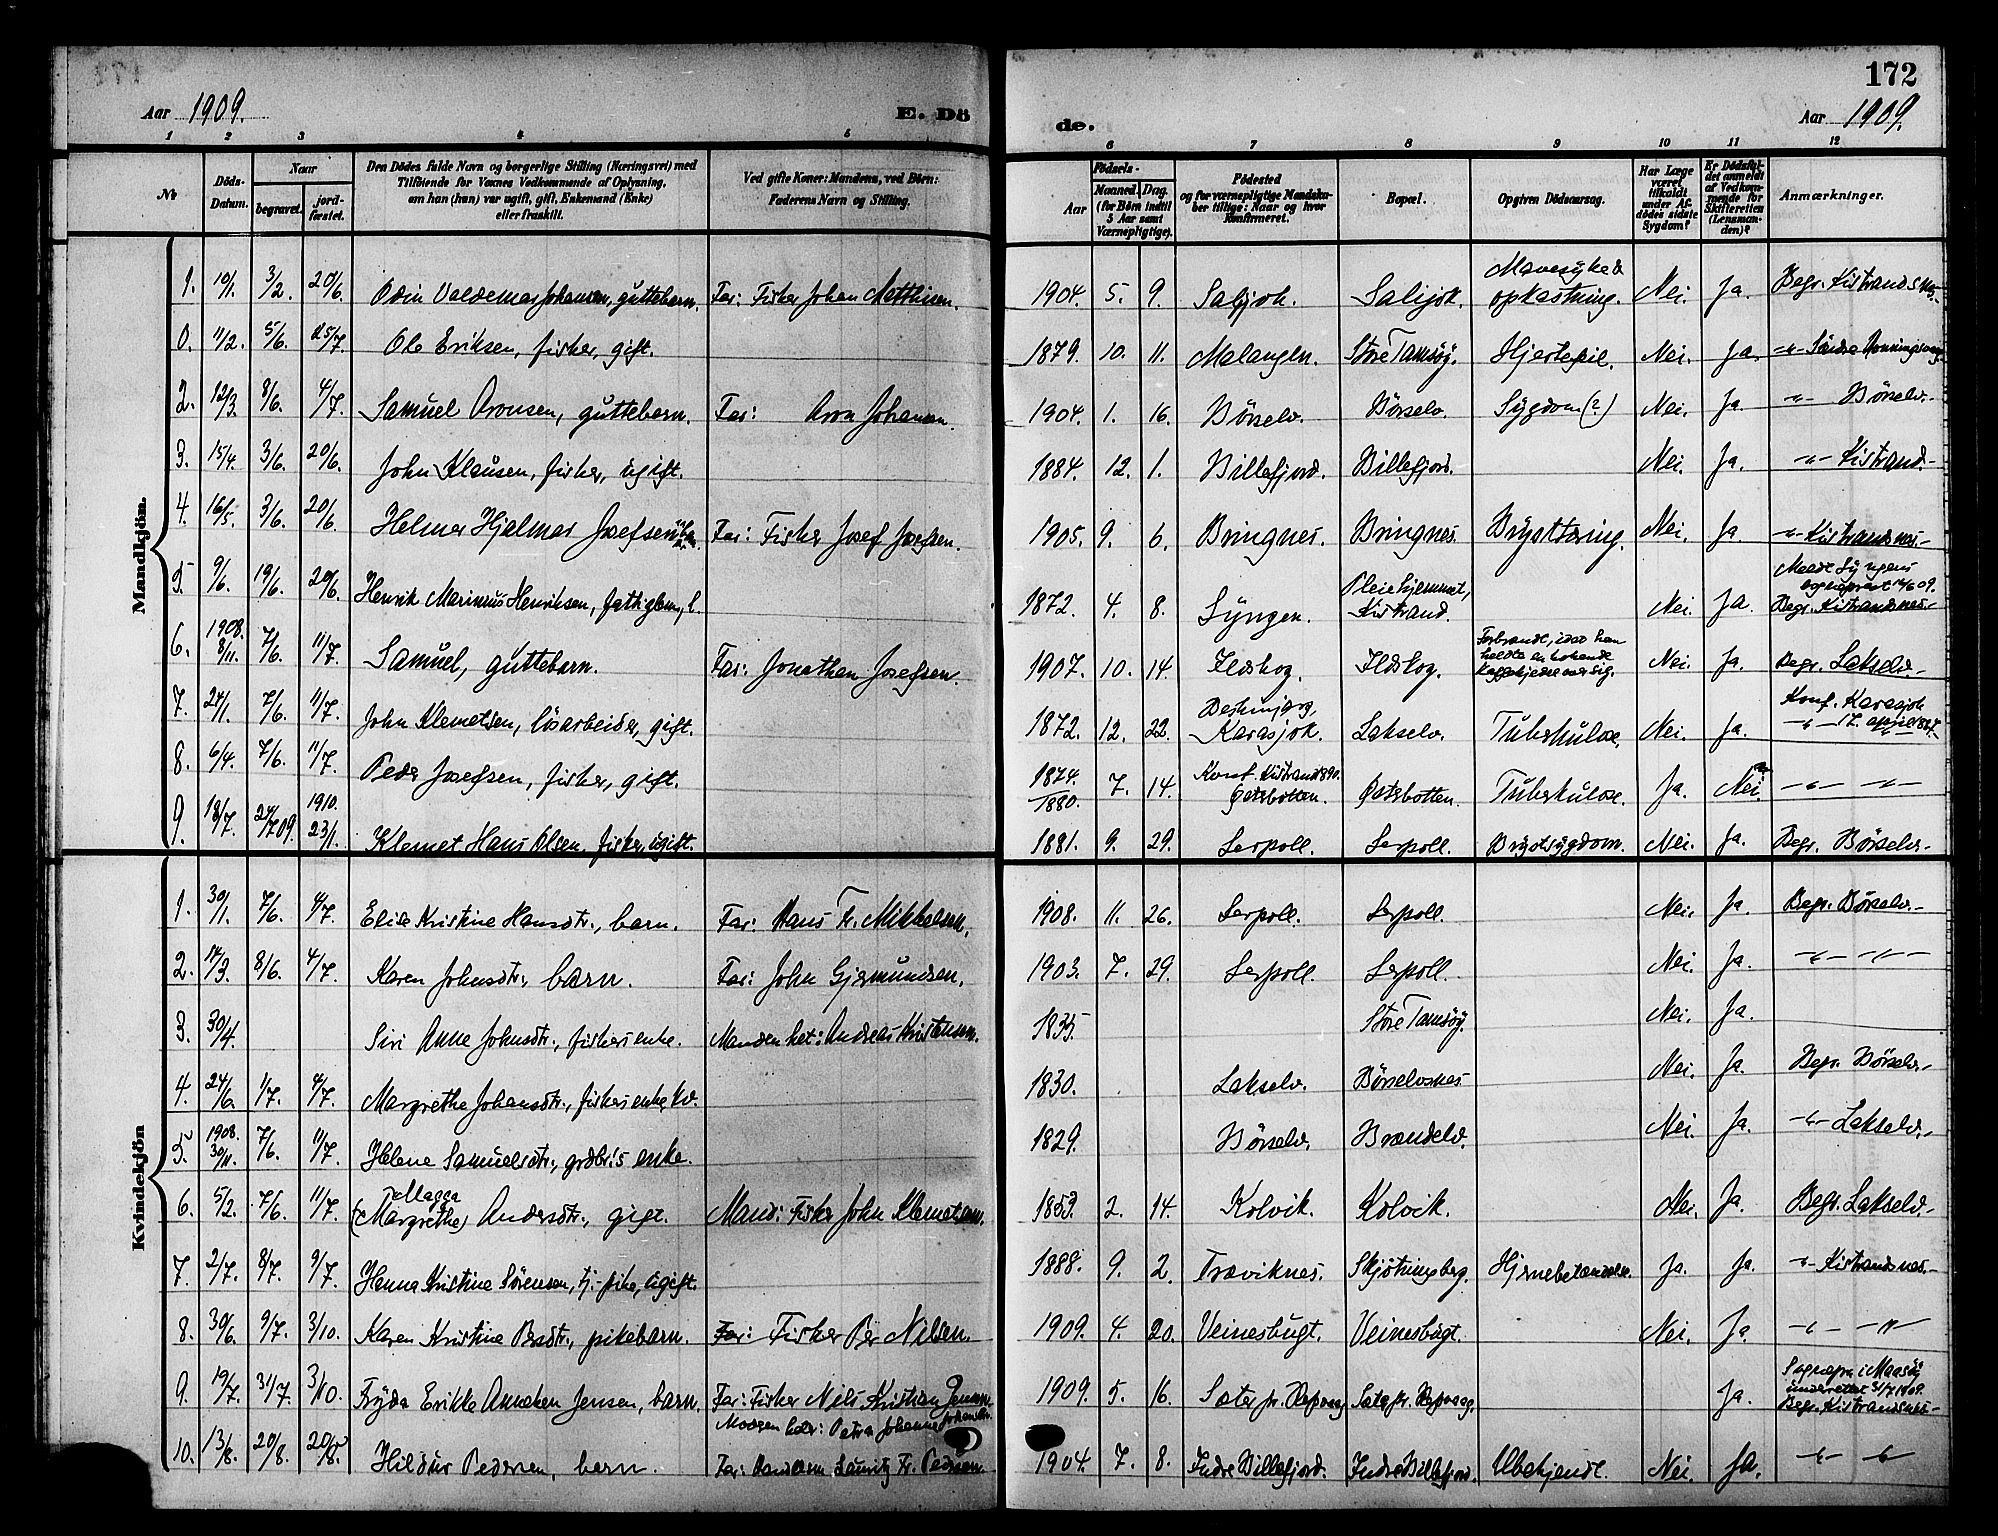 172
Aar 1909. E. Dö de. Aar 1909.
1 2 3 4 5 6 7 8 9 10 11 12
№
Döds-Datum.
Naar
begravet.
jord-fæstet.
Den Dödes fulde Navn og borgerlige Stilling (Næringsvei) med
Tilföiende for Voxnes Vedkommende af Oplysning,
om han (hun) var ugift, gift, Enkemand (Enke)
eller fraskilt.
Ved gifte Koner: Mandens, ved Börn:
Faderens Navn og Stilling.
Födsels-
Aar
Maaned. Dag.
(for Börn indtil
5 Aar samt
Værnepligtige).
Födested
og for værnepligtige Mandska-
ber tillige: Naar og hvor
Konfirmeret.
Bopæl.
Opgiven Dödsaarsag.
Har Læge
været
tilkaldt
under Af-
dödes sidste
Sygdom?
Er Dödsfal-
det anmeldt
af Vedkom-
mende for
Skifteretten
(Lensman-
den)?
Anmærkninger.
Mandkjön.
1. 10/1. 3/2. 20/6. Odin Valdemar Johansen, guttebarn. Far: Fisker Johan Matthisen. 1904. 5. 9. Saljok. Salijok. Mavesyke & opkastning. Nei. Ja. Begr. Kistrandsnes.
0. 11/2. 5/6. 25/7. Ole Eriksen, fisker, gift. 1879. 10. 11. Malangen. Store Tamsøy. Hjertefeil. Nei. Ja. -"- Søndre Honningsvaag
2. 12/3. 8/6. 4/7. Samuel Aronsen, guttebarn. Far: Aron Johansen. 1904. 1. 16. Börselv. Börselv. Sygdom (?) Nei. Ja. -"- Börselv.
3. 15/4. 3/6. 20/6. John Klausen, fisker, ugift. 1884. 12. 1. Billefjord. Billefjord. Nei. Ja. -"- Kistrand.
4. 16/5. 3/6. 20/6. Helmer Hjalmar Josefsen Far: Fisker Josef Josefsen. 1905. 9. 6. Bringnes. Bringnes. Brysttæring. Nei. Ja. -"- Kistrandsnes.
5. 9/6. 19/6. 20/6. Henrik Marinius Henriksen, fattiglem, 1872. 4. 8. Lyngen. Pleiehjemmet, Kistrand. Nei. Ja. Meldt Lyngens 09. Begr. Kistrandsnes.
6. 1908. 8/11. 7/6. 11/7. Samuel, guttebarn. Far: Jonathan Josefsen. 1907. 10. 14. Ildskog. Ildskog. Forbrændt, idet han heldte en kokende kaffekjedel over sig. Nei. Ja. Begr. Lakselv.
7. 24/1. 7/6. 11/7. John Klemetsen, lösarbeider, gift. 1872. 12. 22. Karasjok. Lakselv. Tuberkulose. Nei. Ja. Konf. Karasjok -"- 17. april
8. 6/4. 7/6. 11/7. Peder Josefsen, fisker, gift. 1874. 1880. 7. 14. Konf. Kistrand 1890. Østerbotten. Østerbotten. Tuberkulose. Ja. Nei. -"- -"-
9. 18/7. 24/7 09. 1910. 23/1. Klemet Hans Olsen, fisker, ugift. 1881. 9. 29. Lerpoll. Lerpoll. Brystsygdom. Nei. Ja. Begr. Börselv.
Kvindekjön
1. 30/1. 7/6. 4/7. Elise Kristine Hansdtr., barn. Far: Hans Fr. Mikkelsen. 1908. 11. 26. Lerpoll. Lerpoll. Nei. Ja. Begr. Börselv.
2. 14/3. 8/6. 4/7. Karen Johnsdtr., barn. Far: John Gjermundsen. 1903. 7. 29. Lerpoll. Lerpoll. Nei. Ja. -"- -"-
3. 30/4. Siri Anne Johnsdtr., fiskers enke. Manden het: Andreas Kristensen. 1835. Store Tamsøy. Nei. Ja.
4. 24/6. 1/7. 4/7. Margrethe Johansdtr., fiskers enke, kv. 1830. Lakselv. Börselvsnes Nei. Ja. Begr. Börselv.
5. 1908. 30/11. 7/6. 11/7. Helene Samuelsdtr., grdbr.s enke. 1829. Börselv. Brændelv. Nei. Ja. -"- Lakselv.
6. 5/2. 7/6. 11/7. Magga (Margrethe) Andersdtr., gift. Mand: Fisker John Klemetsen. 1853. 2. 14. Kolvik. Kolvik. Nei. Ja. Begr. Lakselv.
7. 2/7. 8/7. 9/7. Hanna Kristine Sörensen, tj. pike, ugift. 1888. 9. 2. Træviknes. Skjötningberg. Hjernebetændelse. Ja. Ja. -"- Kistrandsnes.
8. 30/6. 9/7. 3/10. Karen Kristine Persdtr., pikebarn. Far: Fisker Per Nilsen. 1909. 4. 20. Veinesbugt. Veinesbugt. Nei. Ja. -"- -"-
9. 19/7. 31/7. 3/10. Fryda Erikke Anneken Jensen, barn. Far: Fisker Nils Kristian Jensen. Moren heter: Petra Johanne Johansdtr. 1909. 5. 16. Sæter pr. Repvaag Sæter pr. Repvaag. Ja. Sognepr. i Maasö underrettet 31/7 1909. Begr. Kistrandsnes.
10. 13/8. 20/8. 20/8. Hildur Pedersen, barn. Far: Handelsm. Lauritz Fr. Pedersen. 1904. 7. 8. Indre Billefjord. Indre Billefjord. Ubekjendt. Nei. Ja. -"- -"-